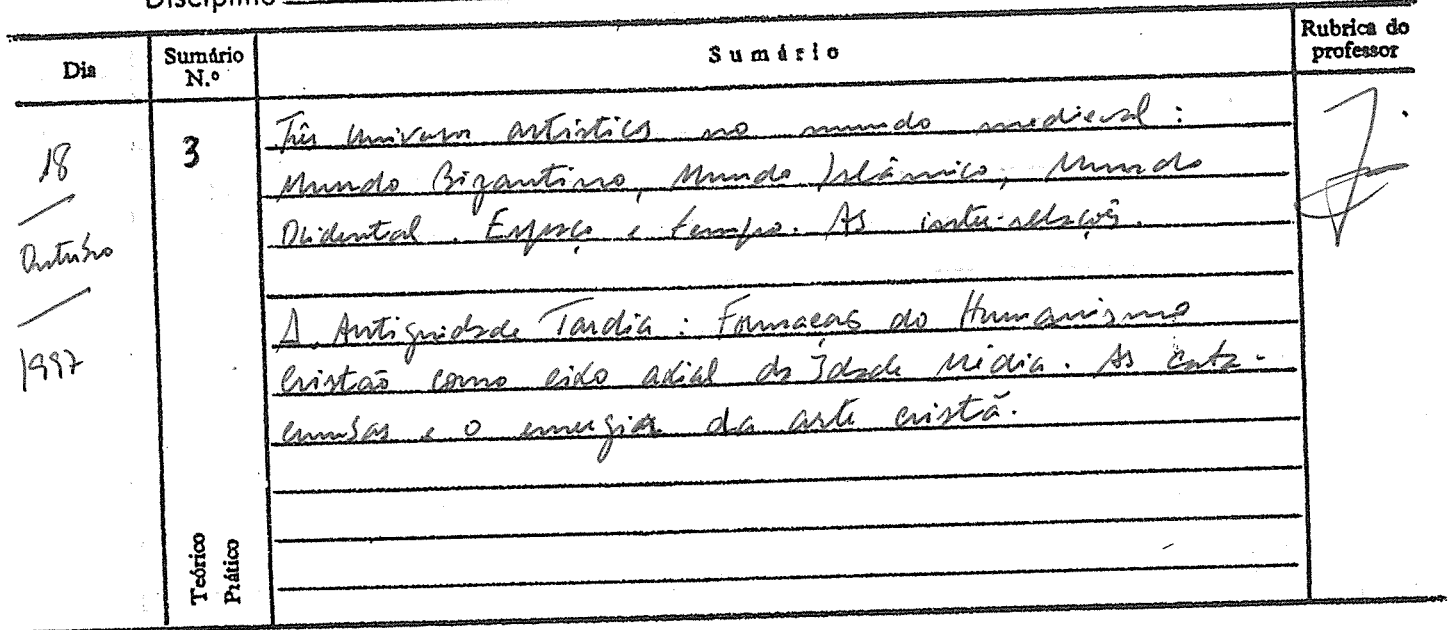 Disciplina
Dia
Sumário N.º
Sumário
Rubrica do professor
18
Outubro
1997
3
Três Universos artísticos no mundo medieval :
Mundo Bizantino, Mundo Islâmico, Mundo
Ocidental . Espaço e tempo. As inter-relações.
A Antiguidade Tardia : Formação do Humanismo
cristão como eido axial da Idade Média . As cata-
cumbas e o emergir da arte cristã.
Teórico
Prático